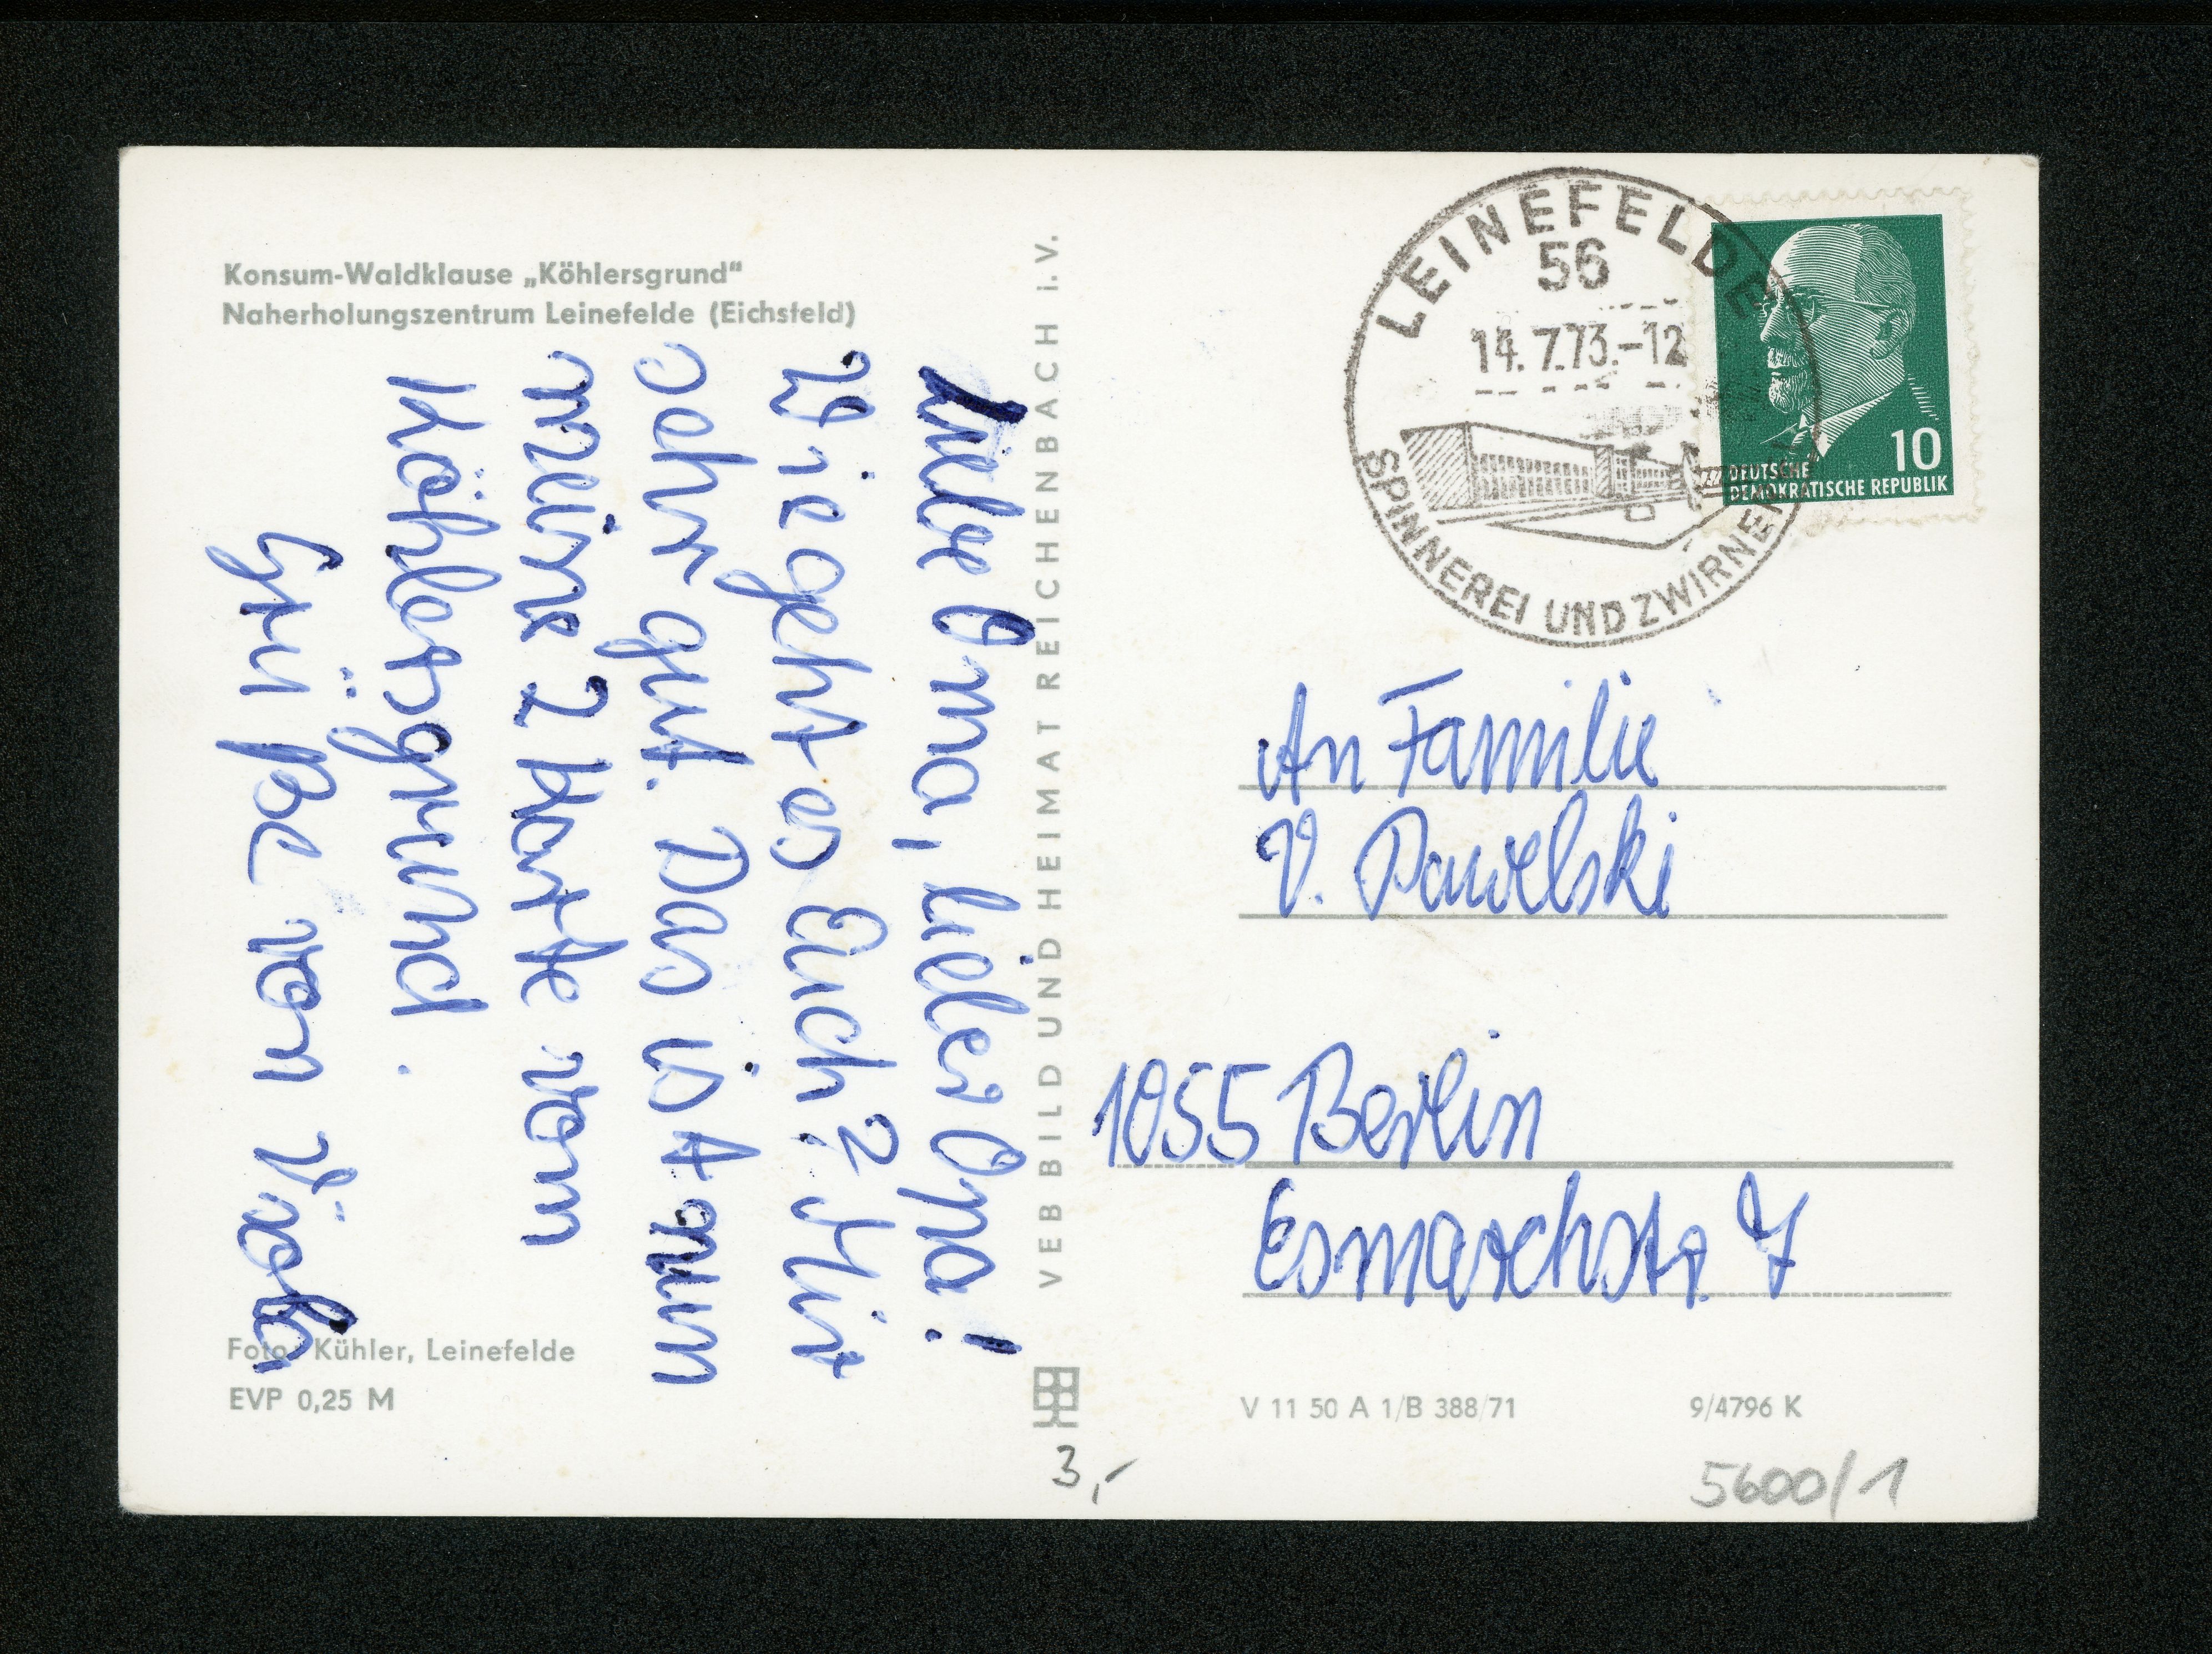 Konsum-Waldklause „Köhlersgrund“
Naherholungszentrum Leinefelde (Eichsfeld)
Liebe Oma, lieber Opa!
Wie geht es Euch? Mir
sehr gut. Das ist nun
meine 2 Karte vom
Köhlersgrund.
Grüße von Viola
Foto: Kühler, Leinefelde
EVP 0,25 M
VEB BILD UND HEIMAT REICHENBACH i.V.
LEINEFELDE
56
14.7.73.-12
SPINNEREI UND ZWIRNEREI
10
DEUTSCHE
DEMOKRATISCHE REPUBLIK
An Familie
V. Pawelski
1055 Berlin
Esmarchstr. 7
V 11 50 A 1/B 388/71
9/4796 K
3,-
5600/1